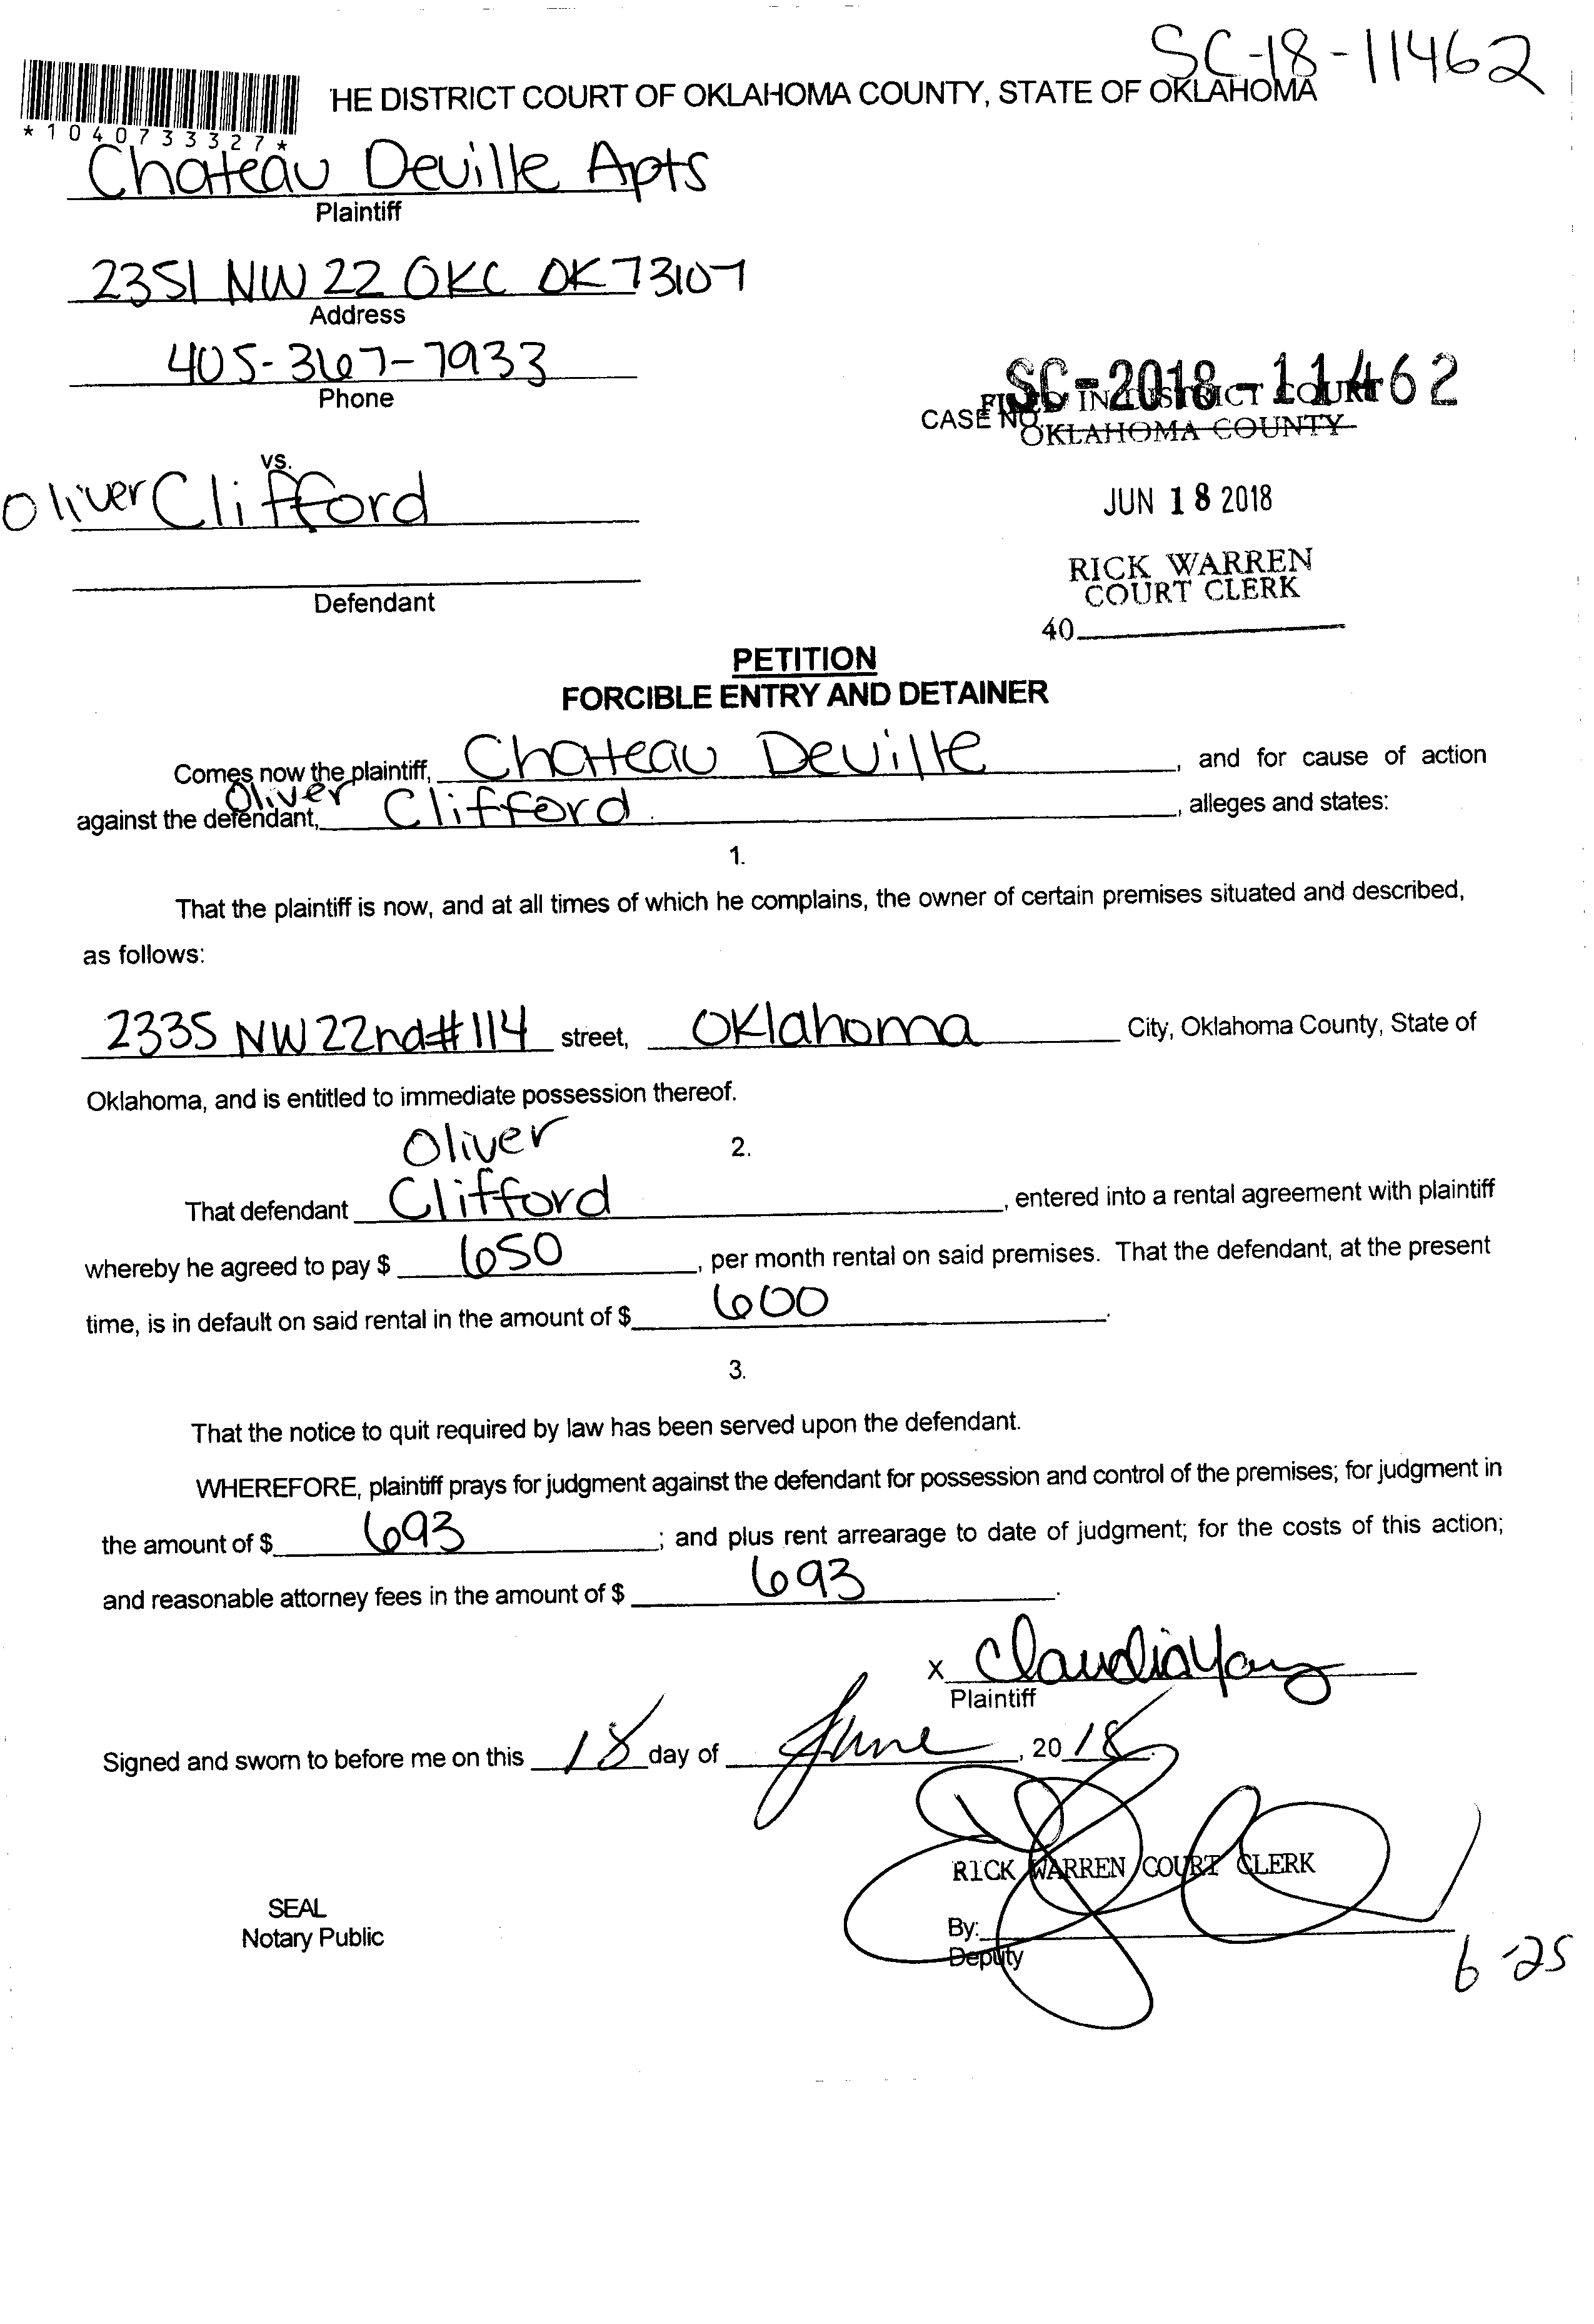 SC-18-11462
HE DISTRICT COURT OF OKLAHOMA COUNTY, STATE OF OKLAHOMA
*1040733327*
Chateau Deville Apts
Plaintiff
2351 NW 22 OKC OK 73107
Address
405-367-7933
Phone
SC-2018-11462
CASE NO.
FILED IN DISTRICT COURT
OKLAHOMA COUNTY
vs.
Oliver Clifford
JUN 18 2018
RICK WARREN
COURT CLERK
Defendant
40
PETITION
FORCIBLE ENTRY AND DETAINER
Comes now the plaintiff, Chateau Deville, and for cause of action
Oliver
against the defendant, Clifford, alleges and states:
1.
That the plaintiff is now, and at all times of which he complains, the owner of certain premises situated and described,
as follows:
2335 NW 22nd #114 street, Oklahoma City, Oklahoma County, State of
Oklahoma, and is entitled to immediate possession thereof.
Oliver
2.
That defendant Clifford, entered into a rental agreement with plaintiff
whereby he agreed to pay $ 650, per month rental on said premises. That the defendant, at the present
time, is in default on said rental in the amount of $ 600.
3.
That the notice to quit required by law has been served upon the defendant.
WHEREFORE, plaintiff prays for judgment against the defendant for possession and control of the premises; for judgment in
the amount of $ 693; and plus rent arrearage to date of judgment; for the costs of this action;
and reasonable attorney fees in the amount of $ 693.
x Claudia
Plaintiff
Signed and sworn to before me on this 18 day of June, 2018.
RICK WARREN COURT CLERK
SEAL
Notary Public
By:
Deputy
6-25